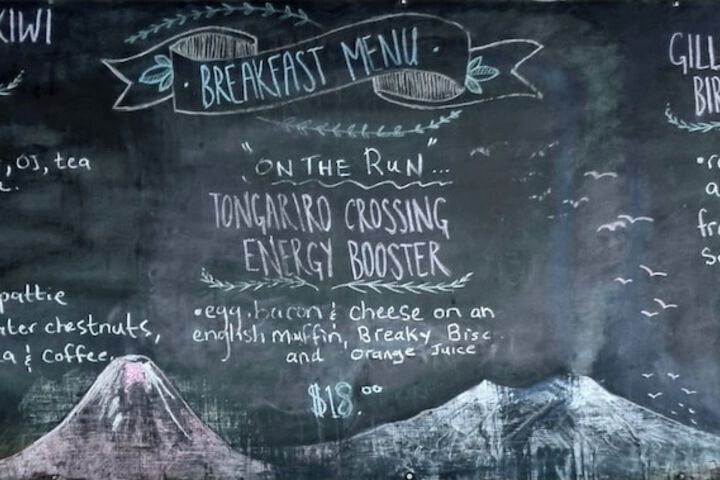 KIWI
BREAKFAST MENU
GILL
BIR
"ON THE RUN"...
, OJ, tea
TONGARIRO CROSSING
ENERGY BOOSTER
fr
pattie
•egg, bacon & cheese on an
ter chestnuts,
english muffin, Breaky Bisc.
& coffee.
and orange Juice
$18.00